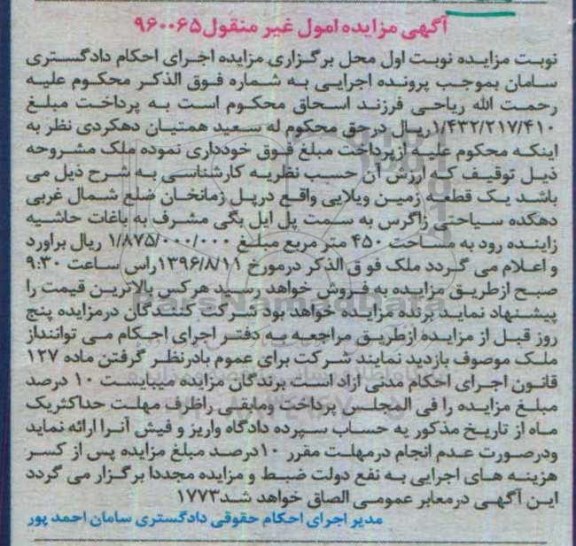 آگهی مزایده امول غیر منقول۹۶۰۰۶۵
نوبت مزایده نوبت اول محل برگزاری مزایده اجرای احکام دادگستری
سامان بموجب پرونده اجرایی به شماره فوق الذکر محکوم علیه
رحمت الله ریاحی فرزند اسحاق محکوم است به پرداخت مبلغ
۱/۴۳۲/۲۱۷/۴۱۰ریال درحق محکوم له سعید همتیان دهکردی نظر به
اینکه محکوم علیه ازپرداخت مبلغ فوق خودداری نموده ملک مشروحه
ذیل توقیف که ارزش آن حسب نظریه کارشناسی به شرح ذیل می
باشد یک قطعه زمین ویلایی واقع درپل زمانخان ضلع شمال غربی
دهکده سیاحتی زاگرس به سمت پل ایل بگی مشرف به باغات حاشیه
زاینده رود به مساحت ۴۵۰ متر مربع مبلغ ۱/۸۷۵/۰۰۰/۰۰۰ ریال براورد
و اعلام می گردد ملک فو ق الذکر درمورخ ۱۳۹۶/۸/۱۱راس ساعت ۹:۳۰
صبح ازطریق مزایده به فروش خواهد رسید هرکس بالاترین قیمت را
پیشنهاد نماید برنده مزایده خواهد بود شرکت کنندگان درمزایده پنج
روز قبل از مزایده ازطریق مراجعه به دفتر اجرای احکام می توانداز
ملک موصوف بازدید نمایند شرکت برای عموم بادرنظر گرفتن ماده ۱۲۷
قانون اجرای احکام مدنی ازاد است برندگان مزایده میبایست ۱۰ درصد
مبلغ مزایده را فی المجلس پرداخت ومابقی راظرف مهلت حداکثریک
ماه از تاریخ مذکور به حساب سپرده دادگاه واریز و فیش آنرا ارائه نماید
ودرصورت عدم انجام درمهلت مقرر ۱۰درصد مبلغ مزایده پس از کسر
هزینه های اجرایی به نفع دولت ضبط و مزایده مجددا برگزار می گردد
این آگهی درمعابر عمومی الصاق خواهد شد۱۷۷۳
مدیر اجرای احکام حقوقی دادگستری سامان احمد پور